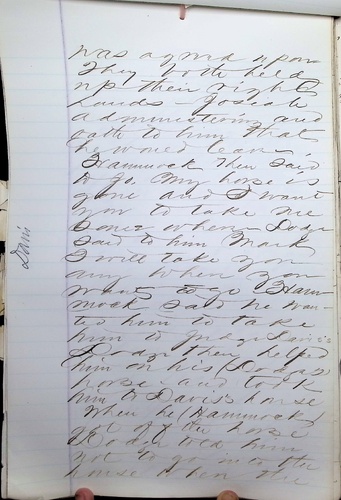 was agreed upon
They both held
up their right
hands - Josiah
administering and
oath to him that
he would leave.
Hammock then said
to go. My horse is
gone and I want
you to take me
Dodge
said to him Mark
I will take you
any where you
want to go Ham-
mock said he wan-
ted him to take
him to Judge Davis's
Dodge then helped
him on his (Dodge's)
horse and took
him to Davis's house
When he (Hammock)
got off the horse
Dodge told him
not to go into the
house when the
Davis